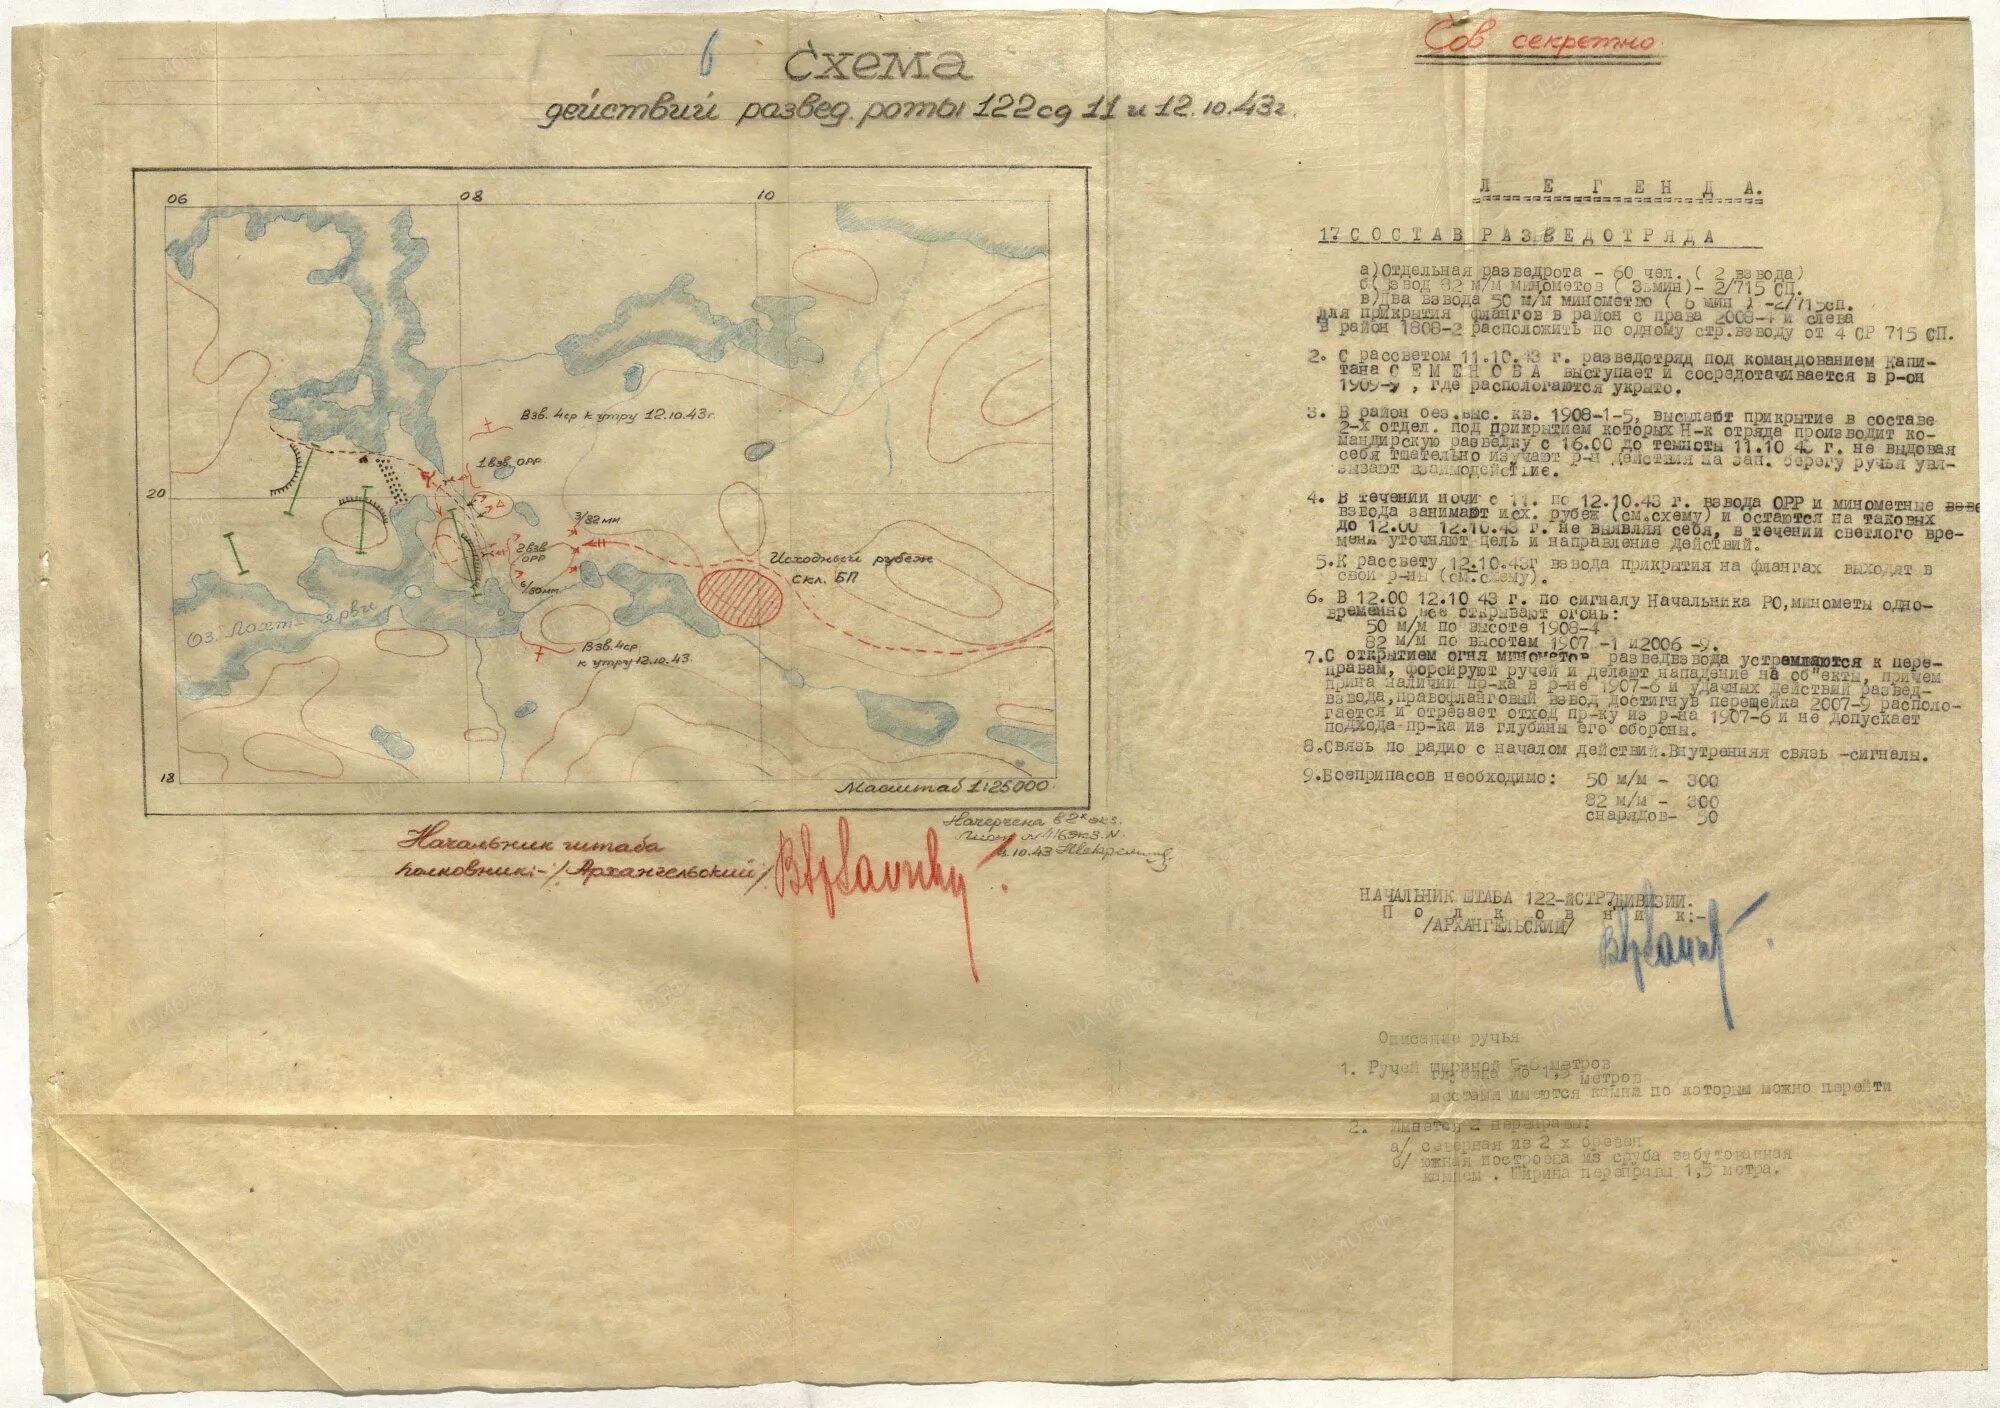 Сов секретно
6
Схема
действий развед. роты 122сд 11 и 12.10.43г.
06
08
10
Взв. 4ср к утру 12.10.43г.
1 взв. ОРР
20
3/82 мм
2 взв
ОРР
6/50 мм
Исходный рубеж
скл. БП
Оз. Лохт-ярви
Взв. 4ср
к утру 12.10.43.
18
Масштаб 1:25000
Начерчена в 2х экз.
10.43
Начальник штаба
полковник:- /Архангельский/
Л Е Г Е Н Д А.
1. С О С Т А В Р А З В Е Д О Т Р Я Д А
а)Отдельная разведрота - 60 чел. ( 2 взвода)
б( взвод 82 м/м минометов ( 3ьмин)- 2/715 СП.
в)Два взвода 50 м/м минометво ( 6 мин ) -2/715сп.
для прикрытия флангов в район с права 2008-4 и слева
в район 1808-2 расположить по одному стр.взводу от 4 СР 715 СП.
2. С рассветом 11.10.43 г. разведотряд под командованием капи-
тана С Е М Е Н О В А выступает и сосредотачивается в р-он
1909- , где распологаются укрыто.
3. В район без.выс. кв. 1908-1-5, высылают прикрытие в составе
2-х отдел. под прикрытием которых Н-к отряда производит ко-
мандирскую разведку с 16.00 до темноты 11.10 43 г. не выдовая
себя тшательно изучают р-н действия на зап. берегу ручья увя-
зывают взаимодействие.
4. В течении ночи с 11. по 12.10.43 г. взвода ОРР и минометные взве
взвода занимают исх. рубеж (см.схему) и остаются на таковых
до 12.00 12.10.43 г. не выявляя себя, в течении светлого вре-
мени уточняют цель и направление действий.
5.К рассвету 12.10.43г взвода прикрытия на флангах выходят в
свои р-ны (см.схему).
6. В 12.00 12.10 43 г. по сигналу Начальника РО,минометы одно-
временно все открывают огонь:
50 м/м по высоте 1908-4
82 м/м по высотам 1907 -1 и2006 -9.
7.С открытием огня минометов разведвзвода устремляются к пере-
правам, форсируют ручей и делают нападение на об"екты, причем
прина наличии пр-ка в р-не 1907-6 и удачных действий развед-
взвода,правофланговый взвод достигнув перещейка 2007-9 располо-
гается и отрезает отход пр-ку из р-на 1907-6 и не допускает
подхода пр-ка из глубины его обороны.
8.Связь по радио с началом действий.Внутренняя связь -сигналы.
9.Боеприпасов необходимо: 50 м/м - 300
82 м/м - 300
снарядов- 50
НАЧАЛЬНИК ШТАБА 122-ЙСТР.ДИВИЗИИ.
П о л к о в н и к:-
/АРХАНГЕЛЬСКИЙ/
Описание ручья
1. Ручей шириной 5-6 метров
глубина до 1,5 метров
местами имеются камни по которым можно перейти
2. Имеется 2 переправы:
а/ северная из 2 х бревен
б/ южная постройка из сруба забутованная
камнем . Ширина переправы 1,5 метра.